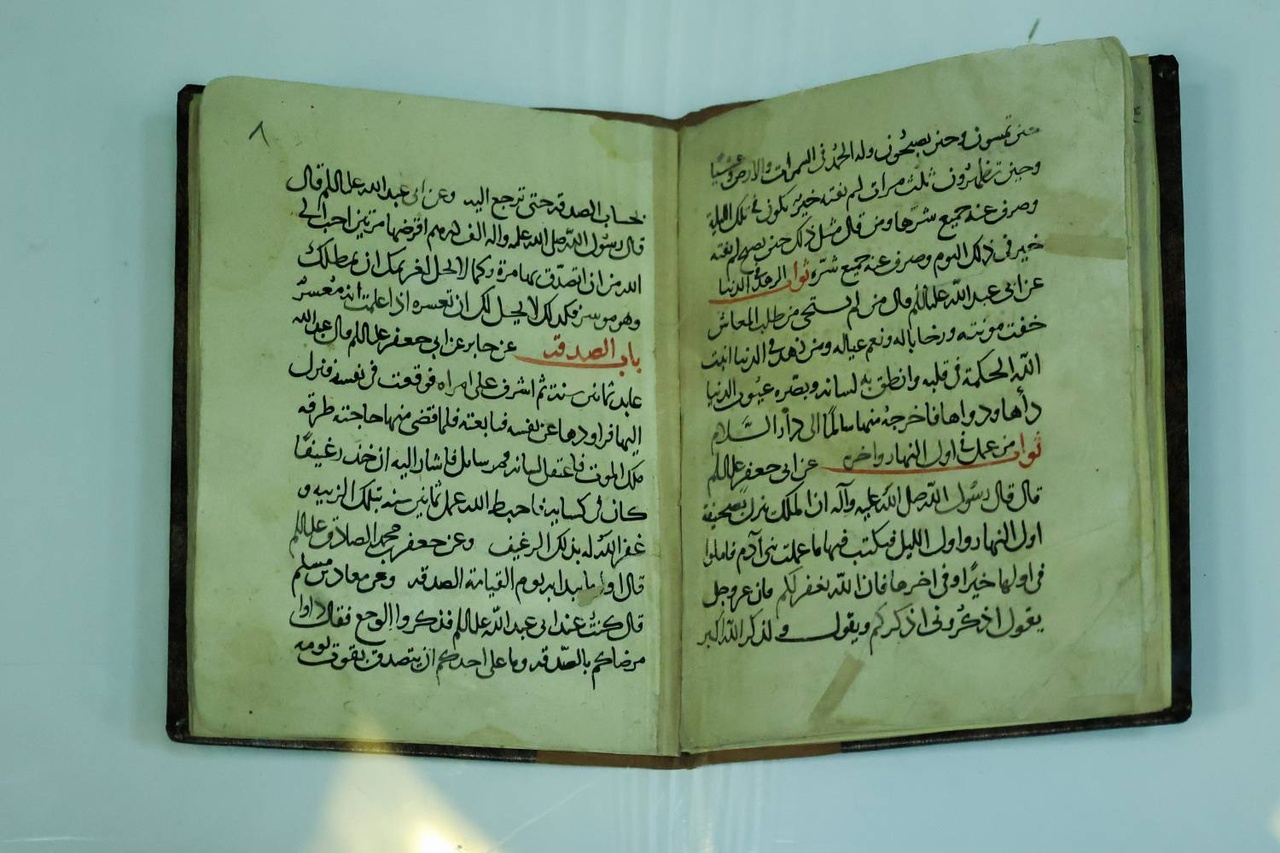 حين تمسون وحين يصبحون وله الحمد في السموات والارض وعشيا
وحين تظهرون ثلث مرات لم يفته خير يكون في تلك الليلة
وصرف عنه جميع شرها ومن قال مثل ذلك حين يصبح لم يفته
خير في ذلك اليوم وصرف عنه جميع شره ثواب الزهد في الدنيا
عن ابي عبد الله علیه السلم قال من لم يستحي من طلب المعاش
خفت مونته ورخا باله ونعم عياله ومن زهد في الدنيا اثبت
الله الحكمة في قلبه وانطق به لسانه وبصره عيوب الدنيا
دأها ودواها فاخرجه منها سالمًا الى دار السَّلام
ثواب من عمل في اول النهار واخره عن ابي جعفر علیه السلم
قال قال رسول الله صلى الله عليه وآله ان الملك ينزل بصحيفة
اول النهار واول الليل فيكتب فيها ما عملت بني آدم فاملوا
في اولها خيرًا وفي اخرها فان الله يغفر لكم فان عز وجل
يقول اذكروني اذكركم ويقول ولذكر الله اكبر
٨
لحساب الصدقه حتى ترجع اليه وعن ابي عبد الله علیه السلم قال
قال رسول الله صلى الله عليه واله الف درهم اقرضها مرتين احب الي
الله من ان اتصدق بها مرة وكما لا يحل لغريمك ان يمطلك
وهو موسر فكذلك لا يحل لك ان تعسره اذا علمت انه معسر
باب الصدقه عن جابر عن ابي جعفر علیه السلم قال عبد الله
عابد ثمانين سنة ثم اشرف على امراه فوقعت في نفسه فنزل
اليها فراودها عن نفسه فتابعته فلما قضى منها حاجته طرقه
ملك الموت فاعتقل لسانه فمر سايل فاشار اليه ان خذ رغيفًا
كان في كسايه فاحبط الله عمل ثمانين سنه بتلك الزنيه و
غفر الله له بذلك الرغيف وعن جعفر بن محمد الصادق علیه السلم
قال اول ما يبدا به يوم القيامة الصدقه وعن معاد بن مسلم
قال كنت عند ابي عبد الله علیه السلم فذكروا الوجع فقال داووا
مرضاكم بالصدقه وما على احدكم ان يتصدق بقوت يومه